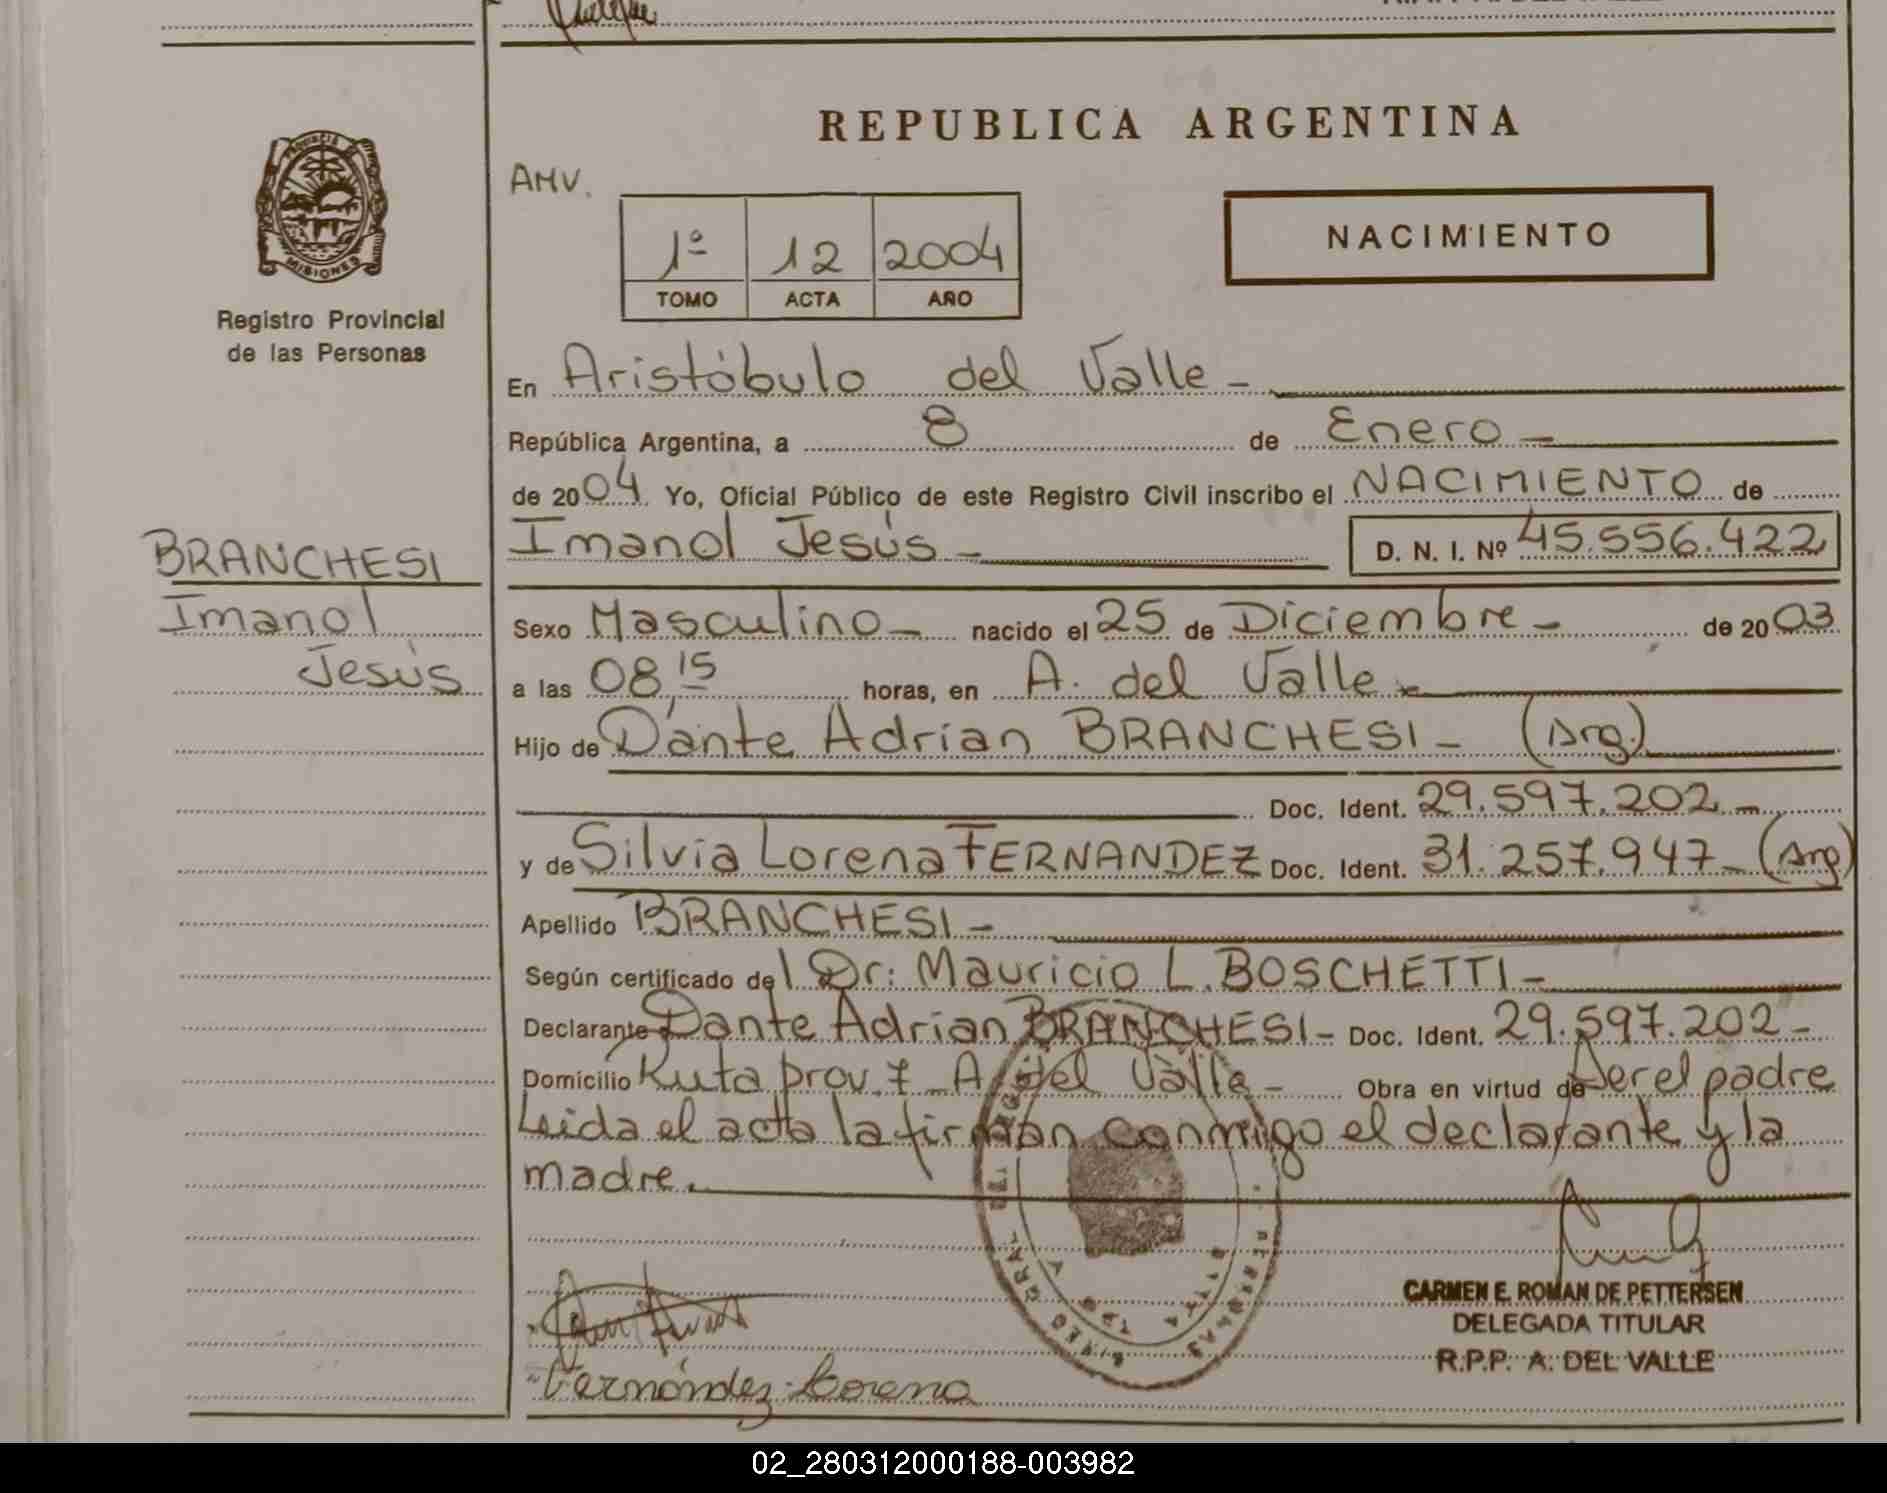 REPUBLICA ARGENTINA
PROVINCIA DE
MISIONES
Registro Provincial
de las Personas
AMV.
1º 12 2004
TOMO ACTA AÑO
NACIMIENTO
En Aristóbulo del Valle -
República Argentina, a 8 de Enero -
de 2004 Yo, Oficial Público de este Registro Civil inscribo el NACIMIENTO de
BRANCHESI
Imanol
Jesús
Imanol Jesús - D. N. I. Nº 45.556.422
Sexo Masculino - nacido el 25 de Diciembre - de 2003
a las 08,15 horas, en A. del Valle -
Hijo de Dante Adrian BRANCHESI - (Arg.)
Doc. Ident. 29.597.202 -
y de Silvia Lorena FERNANDEZ Doc. Ident. 31.257.947 - (Arg)
Apellido BRANCHESI -
Según certificado del Dr: Mauricio L. BOSCHETTI -
Declarante Dante Adrian BRANCHESI - Doc. Ident. 29.597.202 -
Domicilio Ruta prov. 7 A. del Valle - Obra en virtud de ser el padre
Leida el acta la firman conmigo el declarante y la
madre.
CARMEN E. ROMAN DE PETTERSEN
DELEGADA TITULAR
R.P.P. A. DEL VALLE
Fernández Lorena
02_280312000188-003982